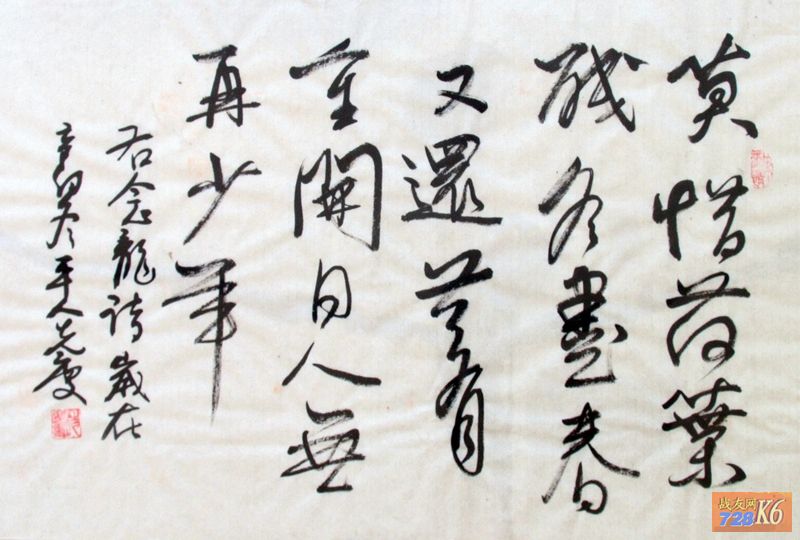 莫惜荷葉
残冬盡春
又還花有
重開日人無
再少年
龍詩歲在
辛卯冬
战友网
728 K6